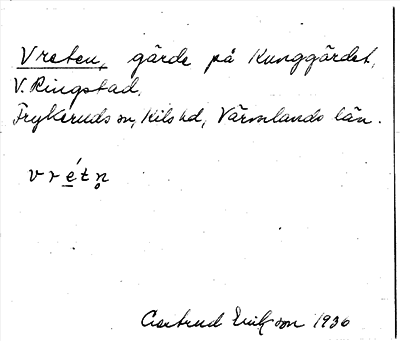 Vreten, gärde på Kunggärdet,
V. Ringstad.
Frykeruds sn, Kils hd, Värmlands län.
v r é t n̥
Gertrud Erikson 1936